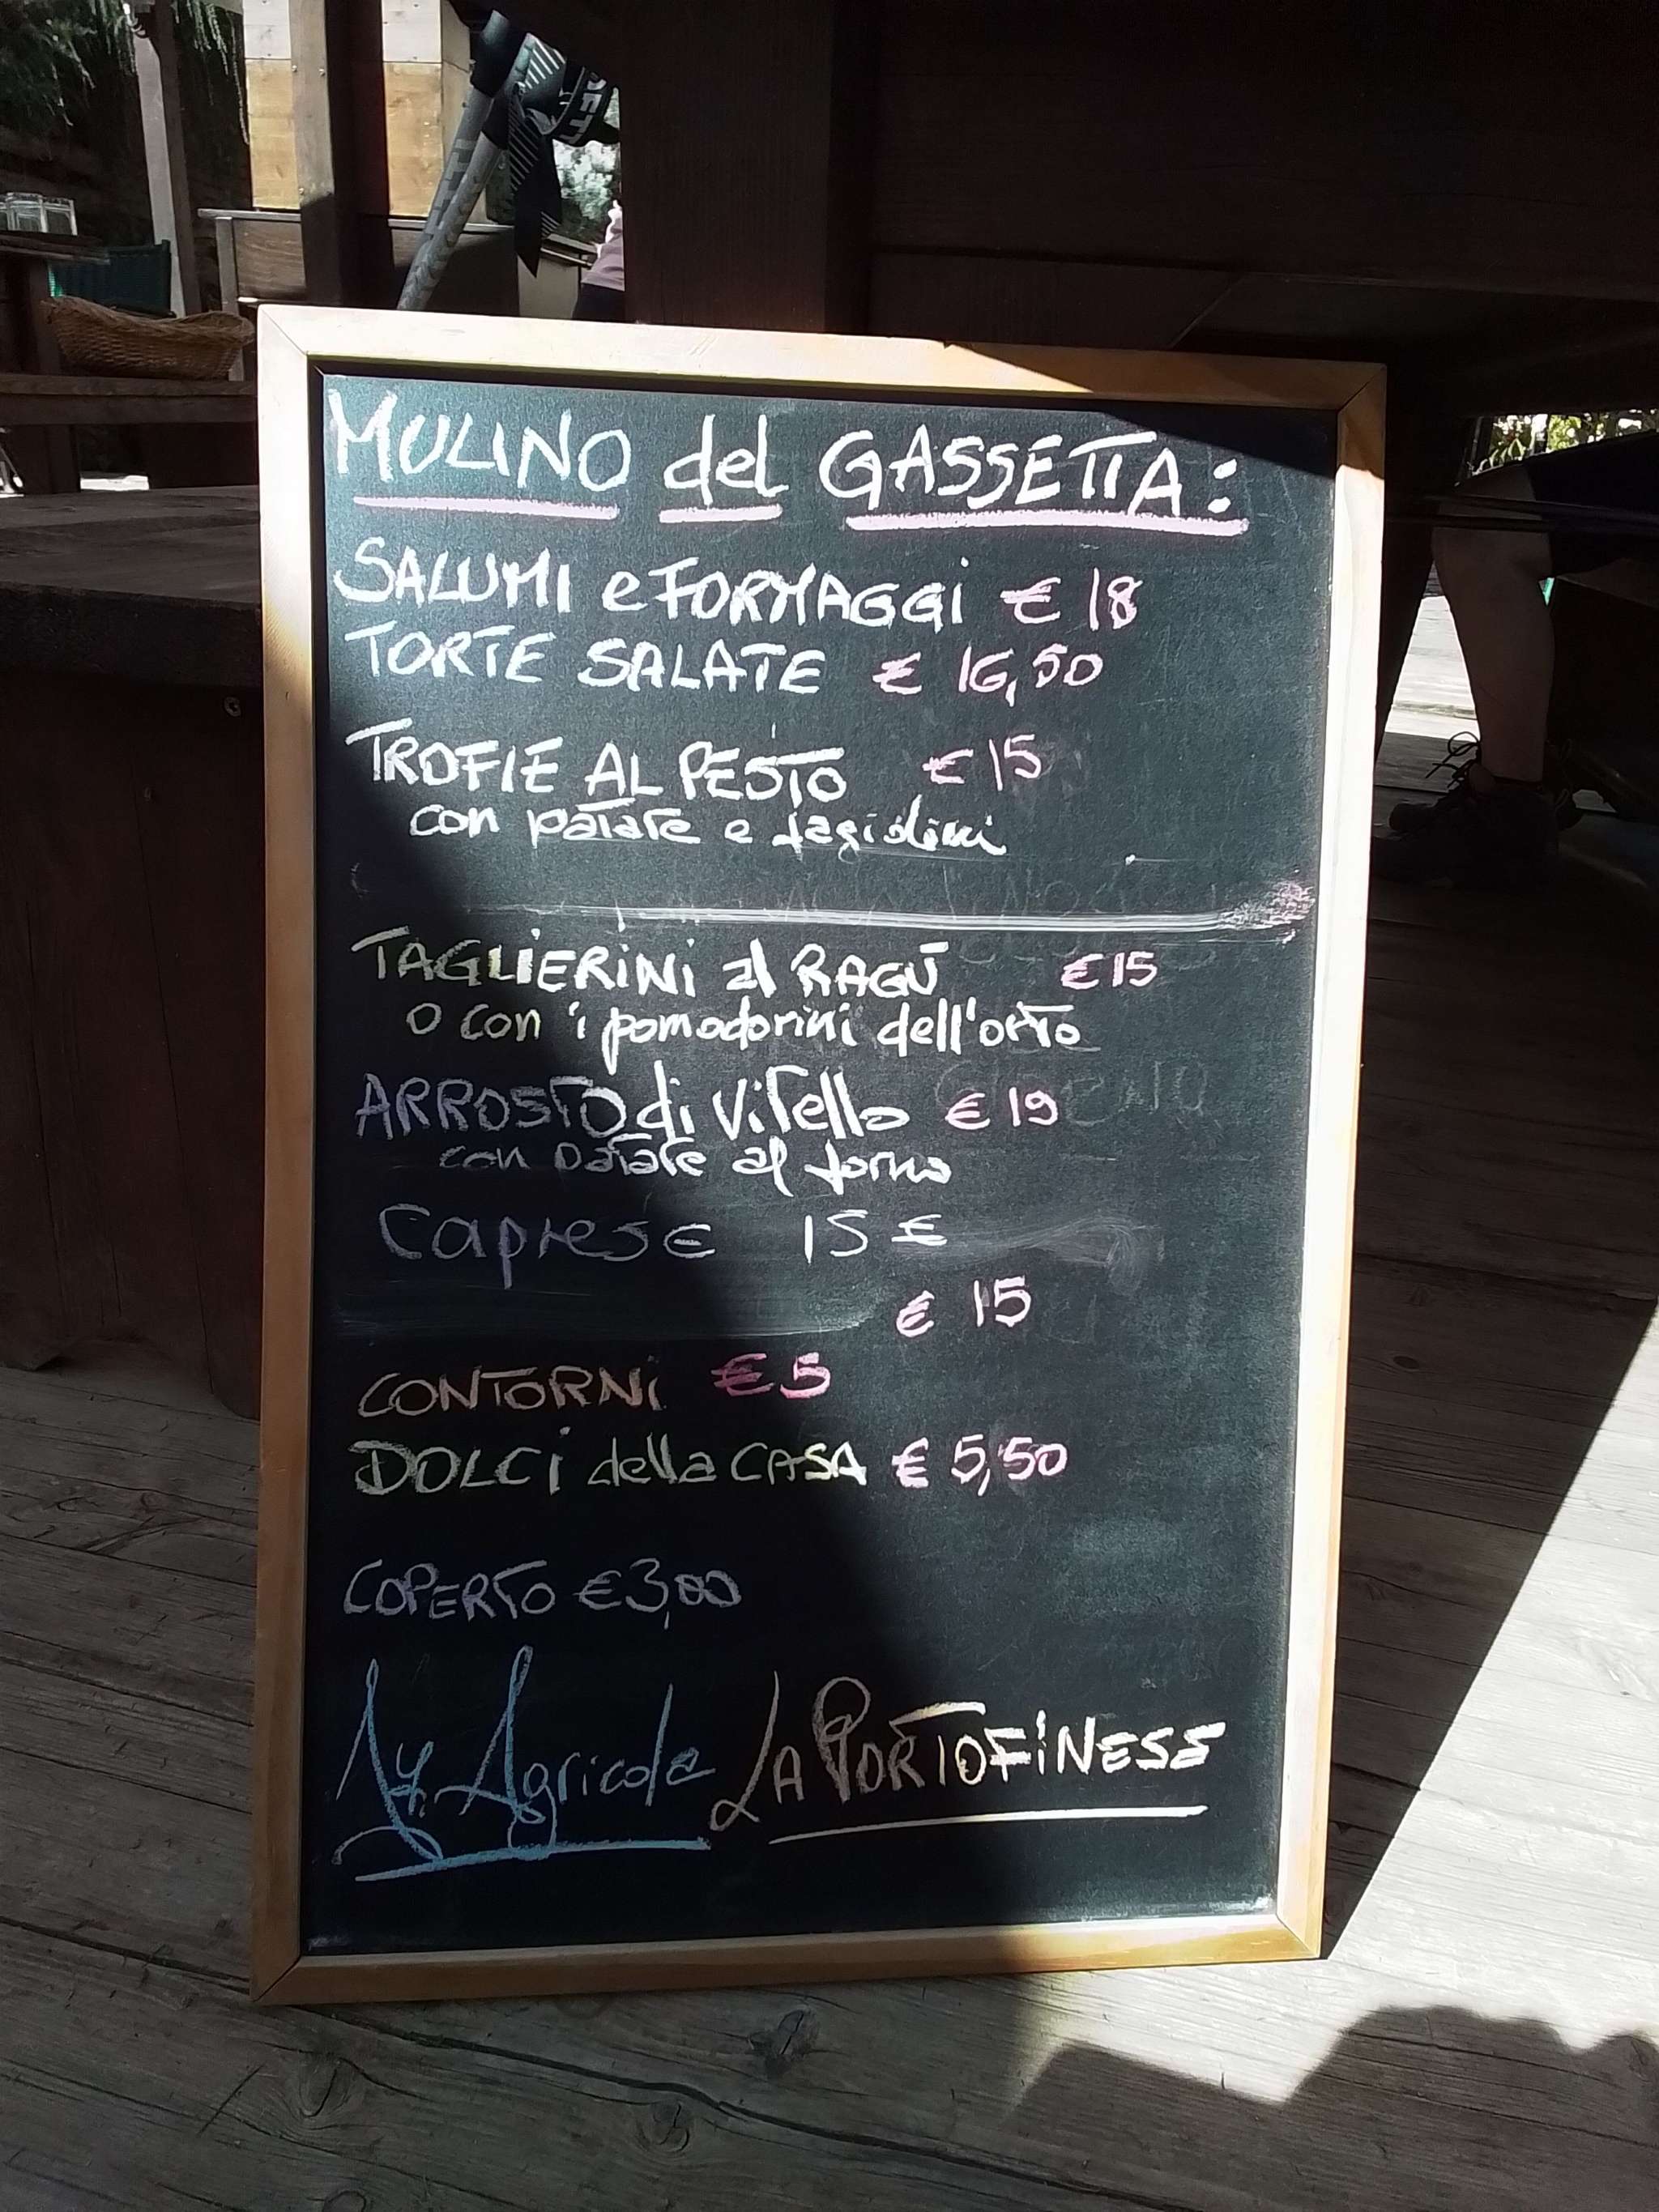 MULINO del GASSETTA:
SALUMI e FORMAGGi € 18
TORTE SALATE € 16,50
TROFIE AL PESTO € 15
con patate e fagiolini
TAGLiERiNi al RAGÙ € 15
o con i pomodorini dell'orto
ARROSTO di Vitello € 19
con patate al forno
Caprese 15 €
€ 15
CONTORNi € 5
DOLCi della CASA € 5,50
COPERTO € 3,00
Az. Agricola LA PORTOFiNESE